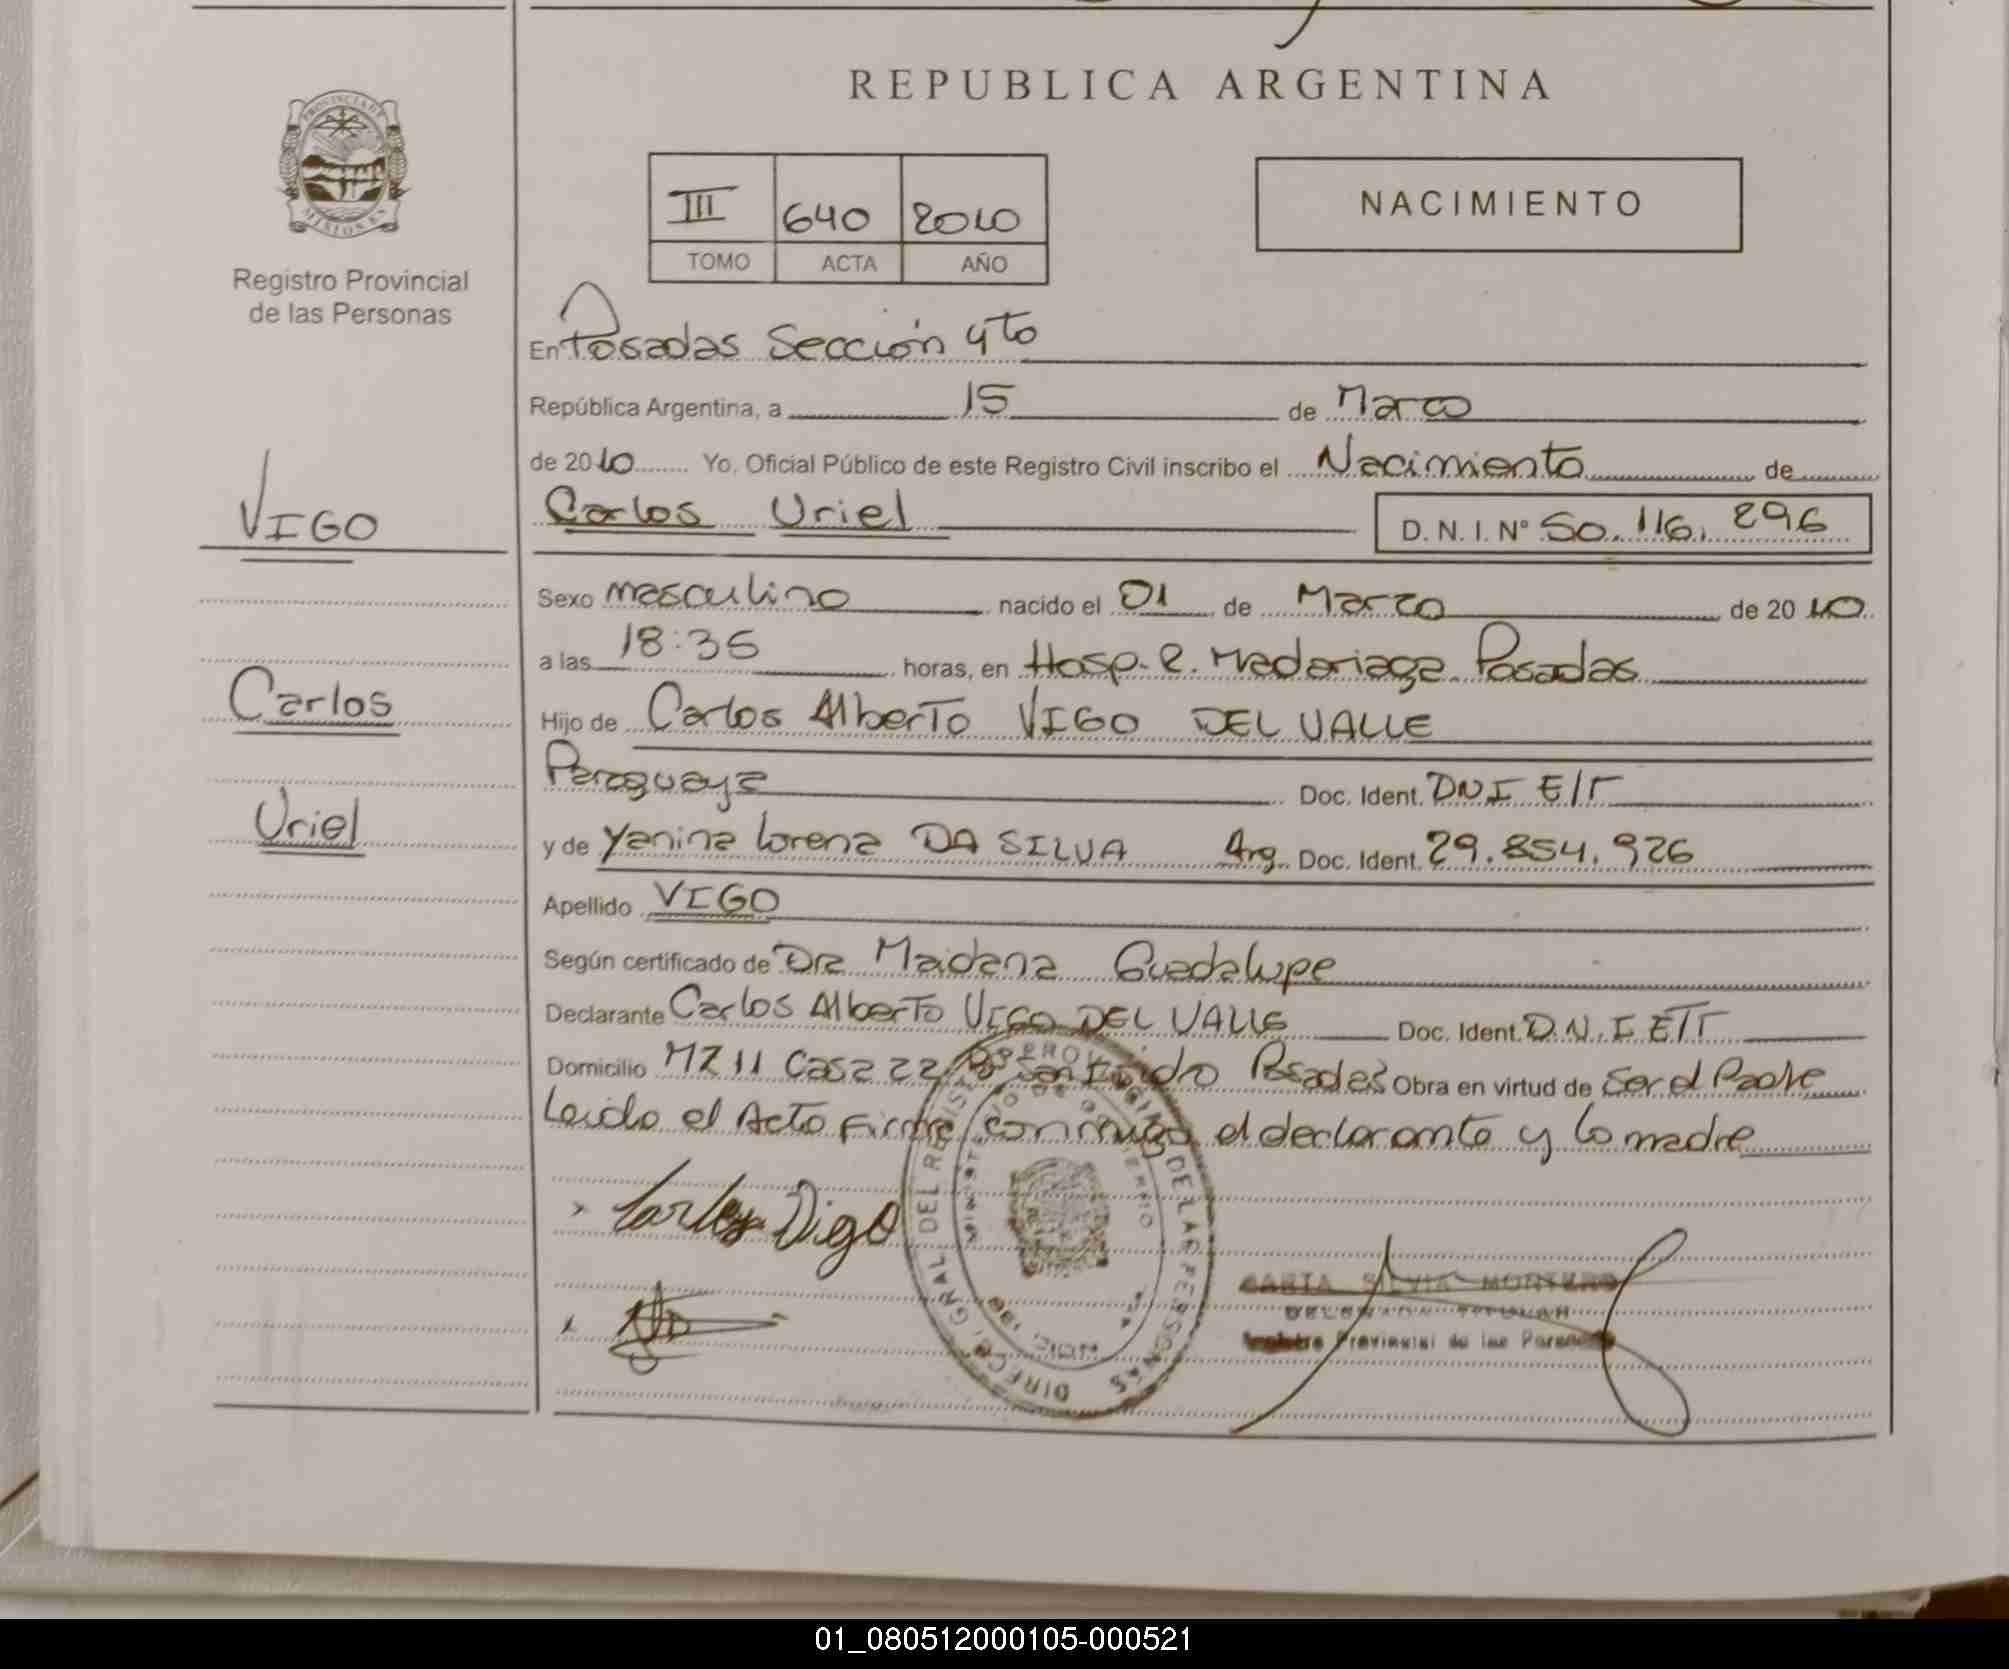 REPUBLICA ARGENTINA
PROVINCIA DE
MISIONES
Registro Provincial
de las Personas
III 640 2010
TOMO ACTA AÑO
NACIMIENTO
En Posadas Sección 4to
República Argentina, a 15 de Marzo
de 2010 Yo, Oficial Público de este Registro Civil inscribo el Nacimiento de
VIGO
Carlos Uriel D. N. I. N° 50.116.296
Sexo masculino nacido el 01 de Marzo de 2010
a las 18:35 horas, en Hosp. R. Madariaga. Posadas
Carlos
Hijo de Carlos Alberto VIGO DEL VALLE
Paraguaya Doc. Ident. DNI E/T
Uriel
y de Yanina Lorena DA SILVA Arg. Doc. Ident. 29.854.926
Apellido VIGO
Según certificado de Dra Maidana Guadalupe
Declarante Carlos Alberto VIGO DEL VALLE Doc. Ident. D.N.I E/T
Domicilio MZ 11 Casa 22 Bº San Isidro Posadas Obra en virtud de Ser el Padre
Leido el Acto Firma conmigo el declarante y la madre
Carlos Vigo
DIRECC. GRAL. DEL REGISTRO PROVINCIAL DE LAS PERSONAS
MINISTERIO DE GOBIERNO
SILVIA MONTERO
DELEGADA TITULAR
Registro Provincial de las Personas
01_080512000105-000521